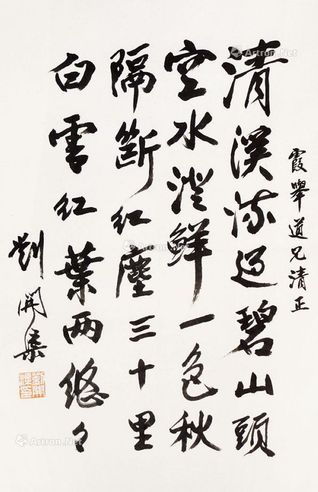 霞举道兄清正
清溪流過碧山頭
空水澄鮮一色秋
隔斷紅塵三十里
白雲紅葉兩悠々
劉開渠
Artron.Net